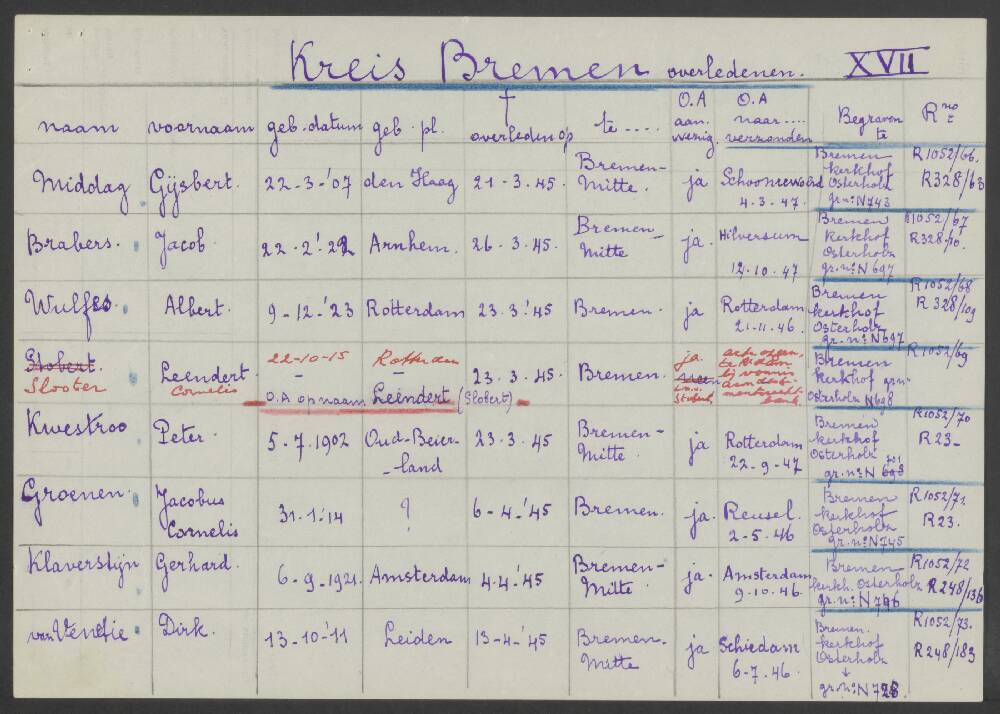 Kreis Bremen overledenen. XVII
naam voornaam geb. datum geb. pl. † overleden op te .... O.A aan. wezig. O.A naar .... verzonden Begraven te R no
Middag Gijsbert. 22-3-'07 den Haag 21-3.45. Bremen-Mitte. ja Schoonrewoerd 4-3-'47. Bremen kerkhof Osterholz gr.no N743 R1052/66. R328/63
Brabers. Jacob. 22-2'-22 Arnhem. 26-3.45. Bremen-Mitte ja. Hilversum 12-10-47 Bremen kerkhof Osterholz gr.no N697 R1052/67 R328/
Wulfes. Albert. 9-12-'23 Rotterdam 23.3.'45 Bremen. ja Rotterdam 21-11-46. Bremen kerkhof Osterholz gr.no N697 R1052/68 R328/109
Stobert. Slooter Leendert. Cornelis 22-10-15 Rotterdam
O.A op naam Leendert (Slobert) 23.3-45 Bremen. ja. neen Bremen kerkhof Osterholz N698 R1052/69
Kwestroo Peter. 5-7.1902 Oud-Beier-land 23-3-45 Bremen-Mitte. ja Rotterdam 22-9-47 Bremen kerkhof Osterholz gr.no N 698 R1052/70 R23-
Groenen. Jacobus Cornelis 31-1-'14 ? 6-4-'45 Bremen. ja. Reusel. 2-5.46 Bremen kerkhof Osterholz gr.no N745 R1052/71 R23.
Klaverstijn Gerhard. 6-9-1921. Amsterdam 4.4-'45 Bremen-Mitte ja. Amsterdam 9-10.46. Bremen kerkh. Osterholz gr.no N796 R1052/72 R248/136
van Venetie. Dirk. 13-10-'11 Leiden 13-4-'45 Bremen-Mitte ja Schiedam 6-7-46. Bremen. kerkhof Osterholz gr.no N728 R1052/73. R248/183